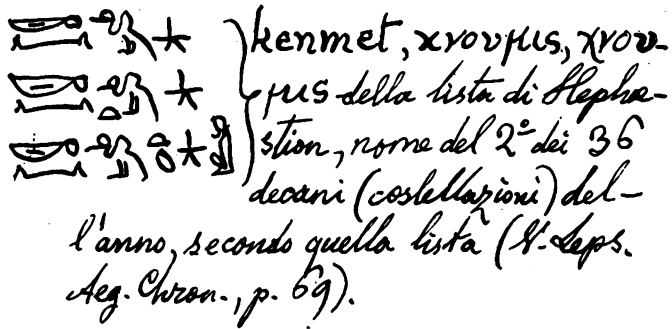 kenmet, χνουμις, χνου-
μις della lista di Hephe-
stion, nome del 2º dei 36
decani (costellazioni) del-
l'anno, secondo quella lista (V. Leps.
Aeg. Chron., p. 69).